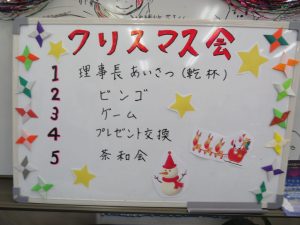 クリスマス会
1 理事長あいさつ(乾杯)
2 ビンゴ
3 ゲーム
4 プレゼント交換
5 茶和会